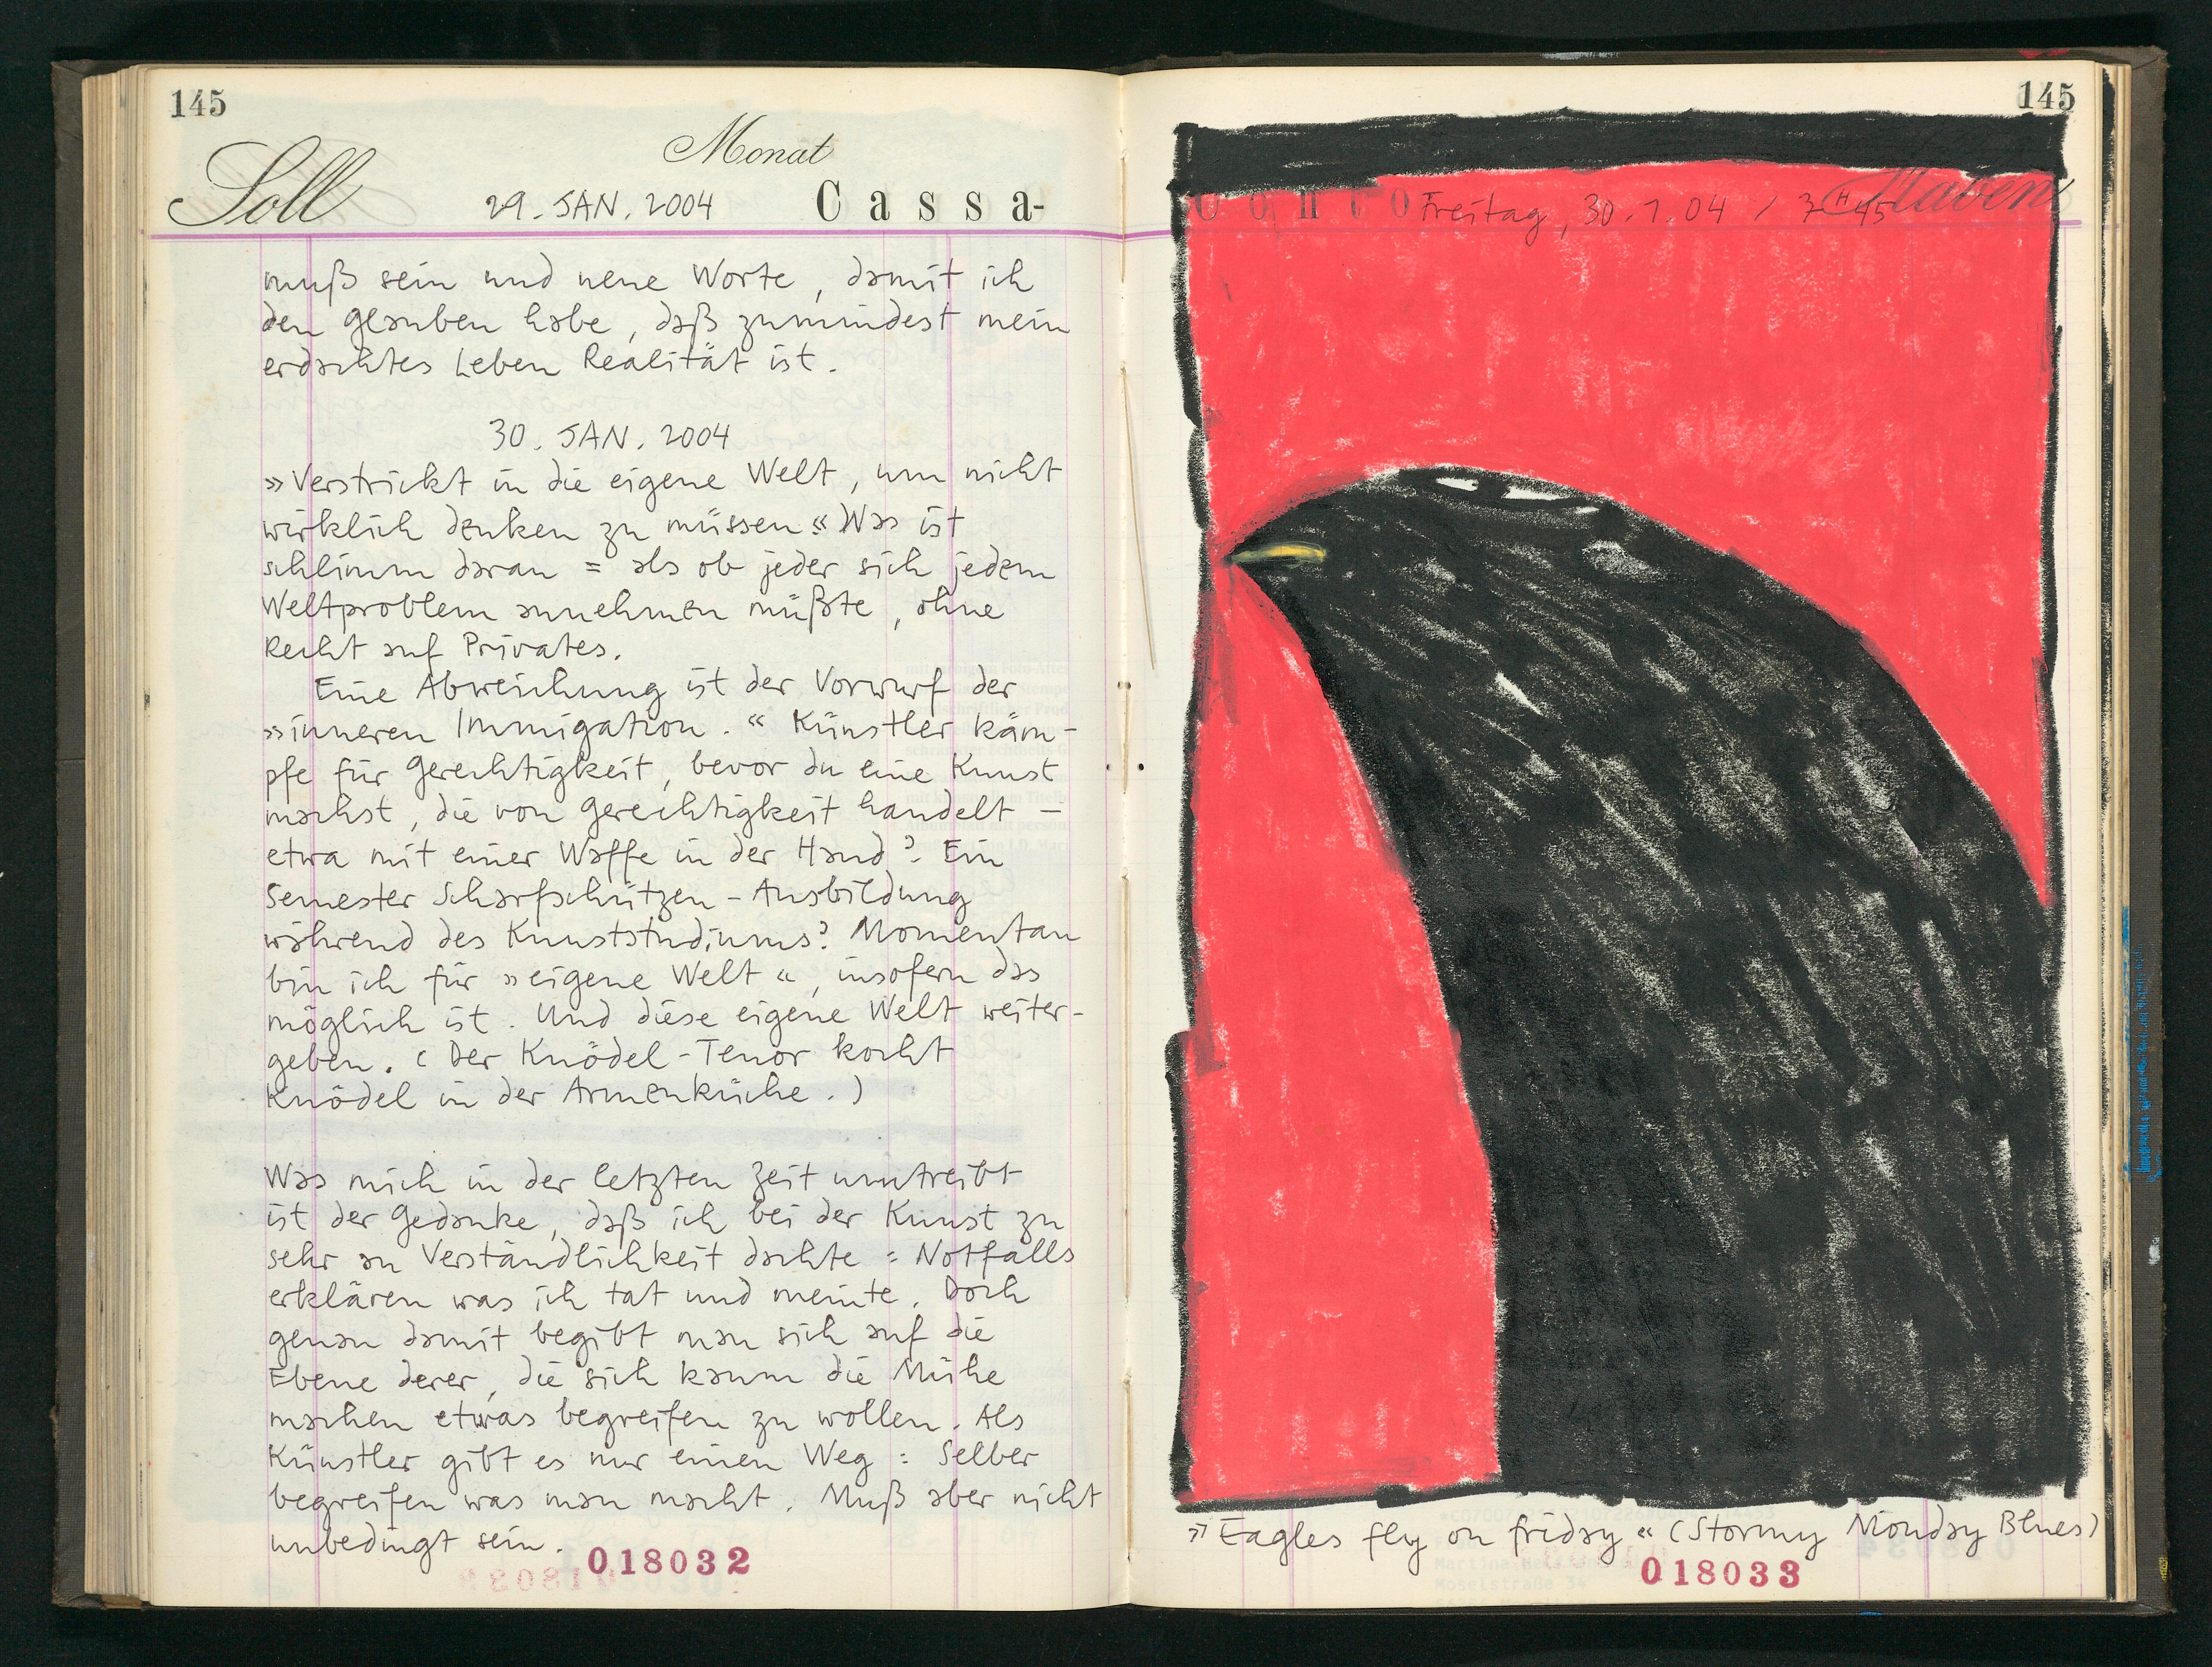 145
Soll
Monat
29. JAN. 2004 Cassa-
muß sein und neue Worte, damit ich
den Glauben habe, daß zumindest mein
erdachtes Leben Realität ist.
30. JAN. 2004
»Verstrickt in die eigene Welt, um nicht
wirklich denken zu müssen« Was ist
schlimm daran = als ob jeder sich jedem
Weltproblem annehmen müßte, ohne
Recht auf Privates.
Eine Abweichung ist der Vorwurf der
»inneren Immigation.« Künstler käm-
pfe für Gerechtigkeit, bevor du eine Kunst
machst, die von Gerechtigkeit handelt –
etwa mit einer Waffe in der Hand? Ein
Semester Scharfschützen-Ausbildung
während des Kunststudiums? Momentan
bin ich für »eigene Welt«, insofern das
möglich ist. Und diese eigene Welt weiter-
geben. (Der Knödel-Tenor kocht
Knödel in der Armenküche.)
Was mich in der letzten Zeit umtreibt
ist der Gedanke, daß ich bei der Kunst zu
sehr an Verständlichkeit dachte: Notfalls
erklären was ich tat und meinte. Doch
genau damit begibt man sich auf die
Ebene derer, die sich kaum die Mühe
machen etwas begreifen zu wollen. Als
Künstler gibt es nur einen Weg: Selber
begreifen was man macht. Muß aber nicht
unbedingt sein.
018032
145
Conto Haben
Freitag, 30.1.04 / 7H45
»Eagles fly on friday« (Stormy Monday Blues)
018033